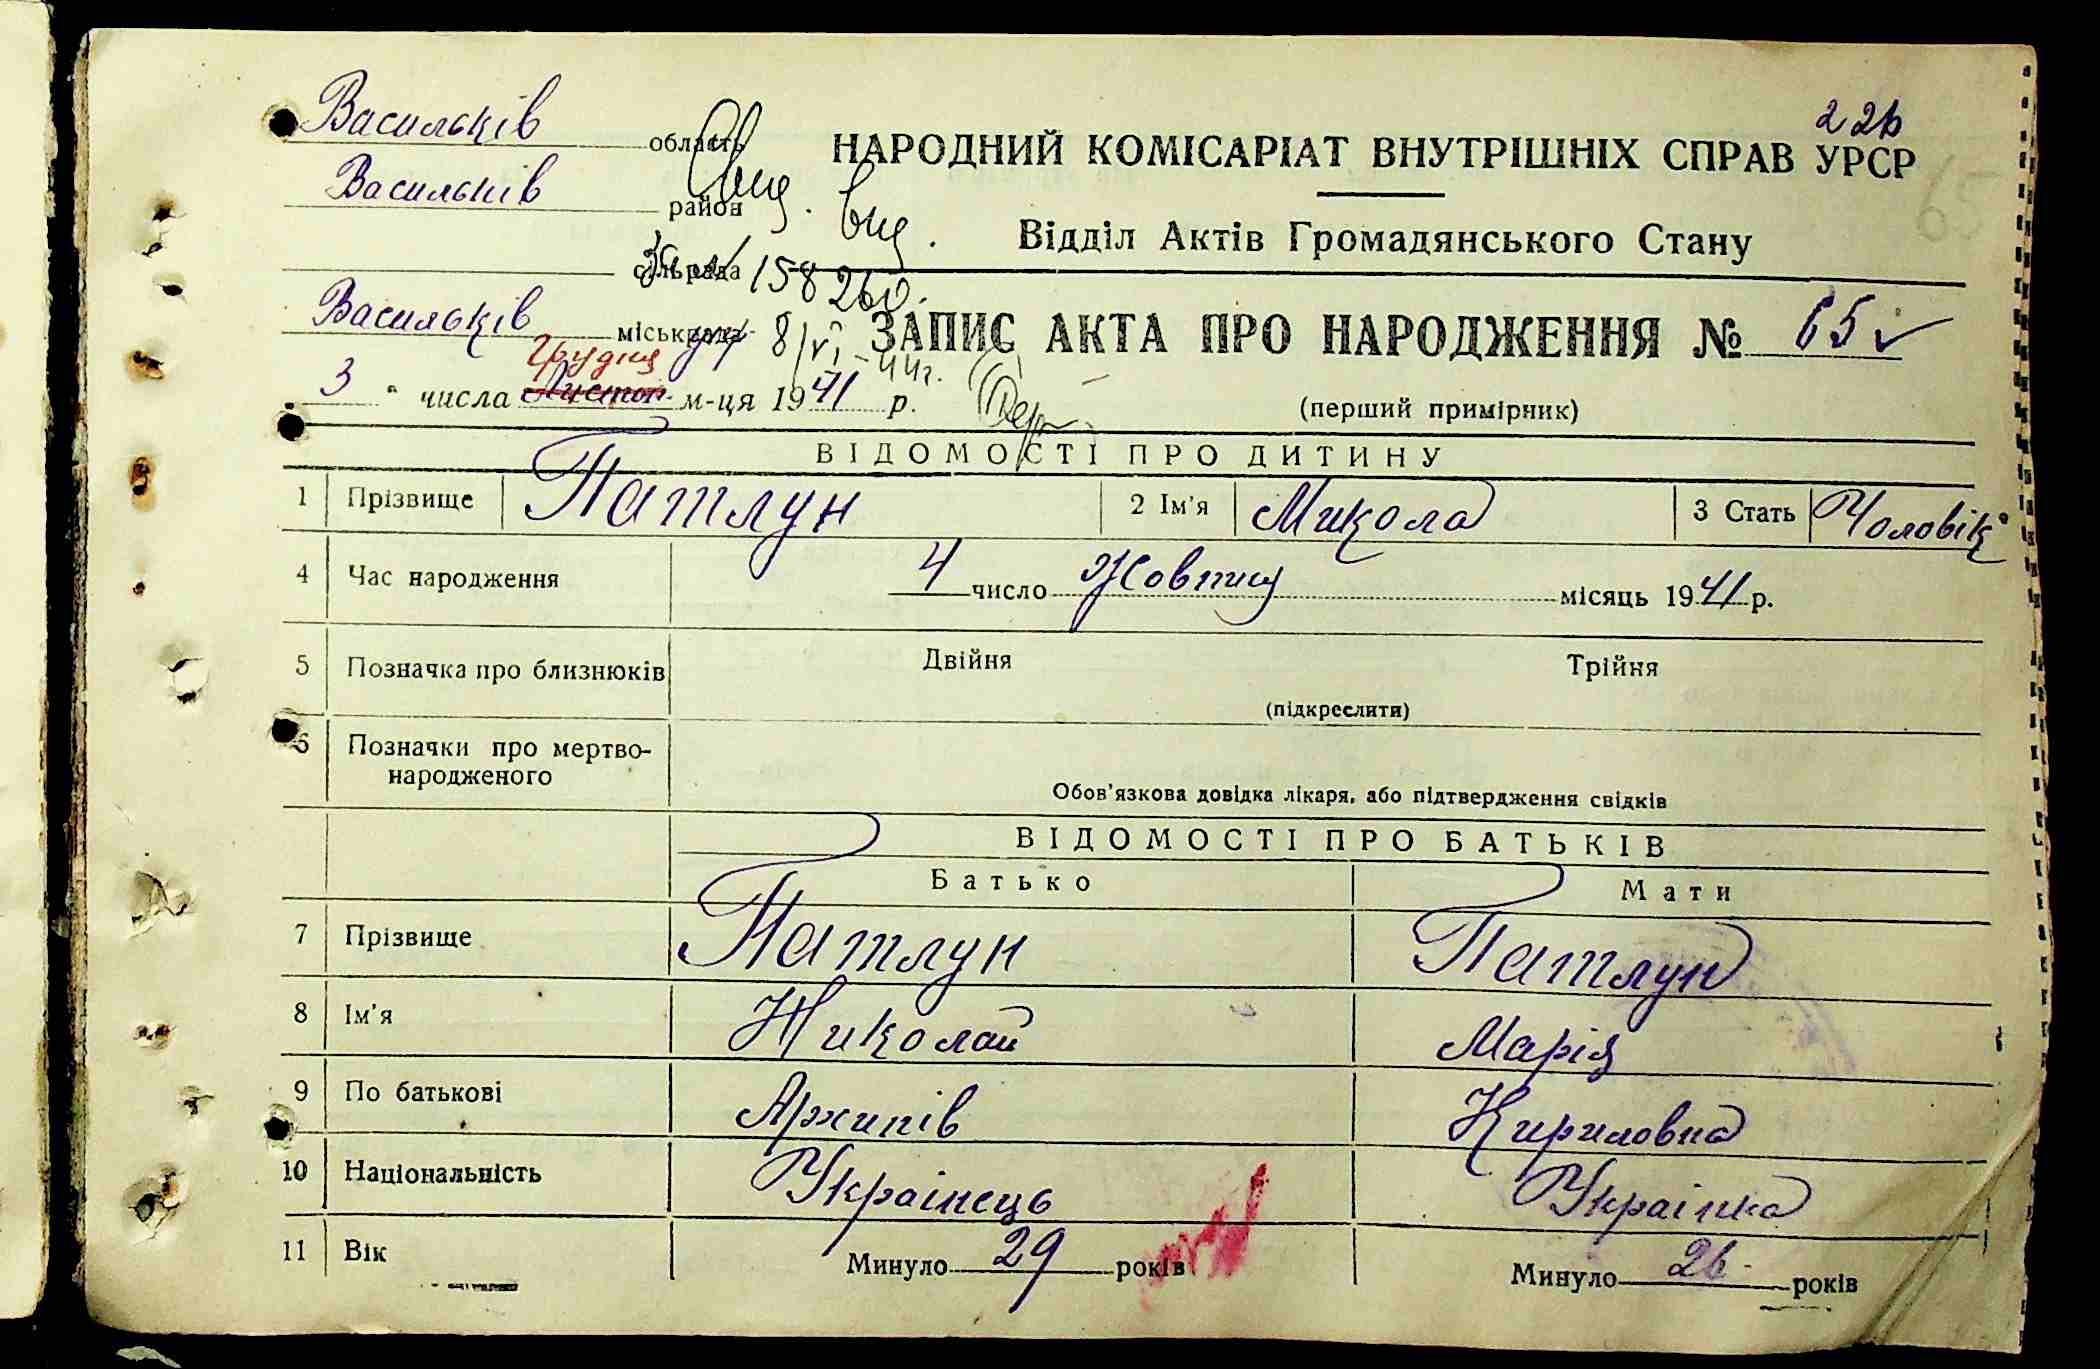 Васильків область
22б
НАРОДНИЙ КОМІСАРІАТ ВНУТРІШНІХ СПРАВ УРСР
Васильків район
65
Відділ Актів Громадянського Стану
сільрада
158260.
Васильків міськрада
8/VI-44г.
ЗАПИС АКТА ПРО НАРОДЖЕННЯ № 65
3 " числа Грудня м-ця 1941 р.
(перший примірник)
ВІДОМОСТІ ПРО ДИТИНУ
1 Прізвище Патлун 2 Ім'я Микола 3 Стать Чоловік
4 Час народження 4 число Жовтня місяць 1941 р.
5 Позначка про близнюків Двійня Трійня
(підкреслити)
6 Позначки про мертво-
народженого
Обов'язкова довідка лікаря, або підтвердження свідків
ВІДОМОСТІ ПРО БАТЬКІВ
Батько Мати
7 Прізвище Патлун Патлун
8 Ім'я Николай Марія
9 По батькові Архипів Кириловна
10 Національність Украінець Украінка
11 Вік Минуло 29 років Минуло 26 років